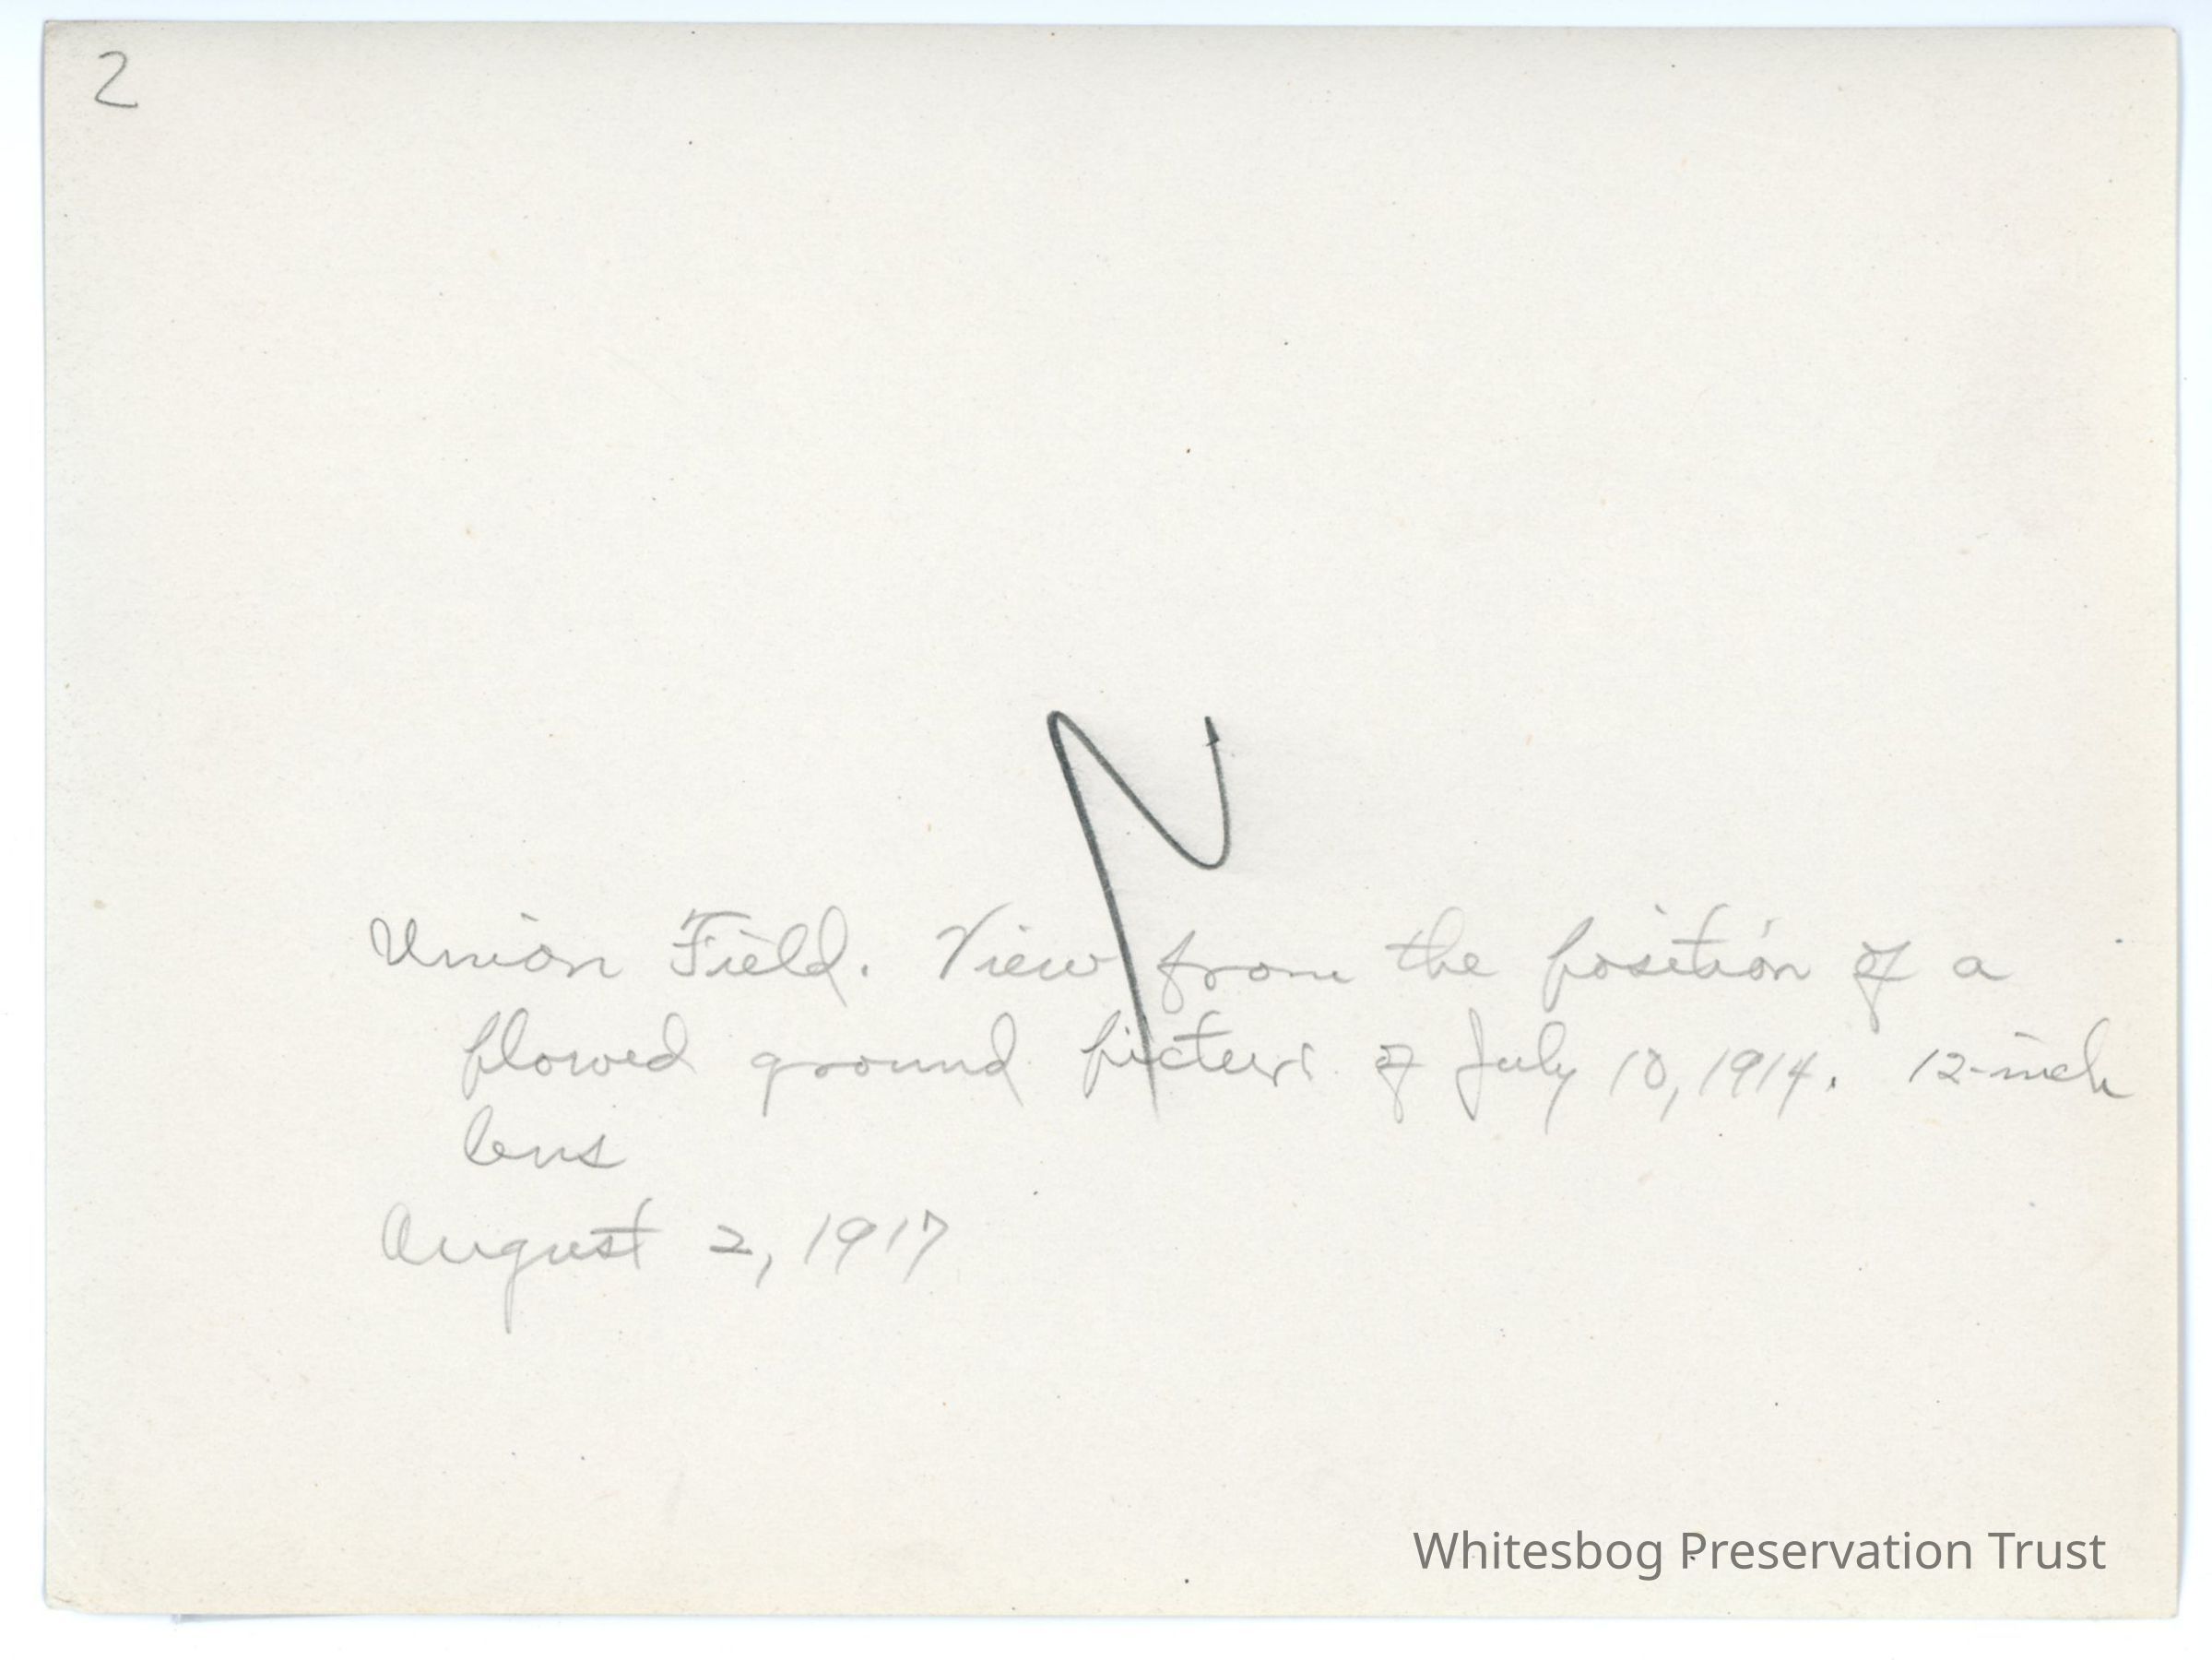 2
Union Field. View from the position of a
plowed ground picture of July 10, 1914. 12-inch
lens
August 2, 1917
Whitesbog Preservation Trust